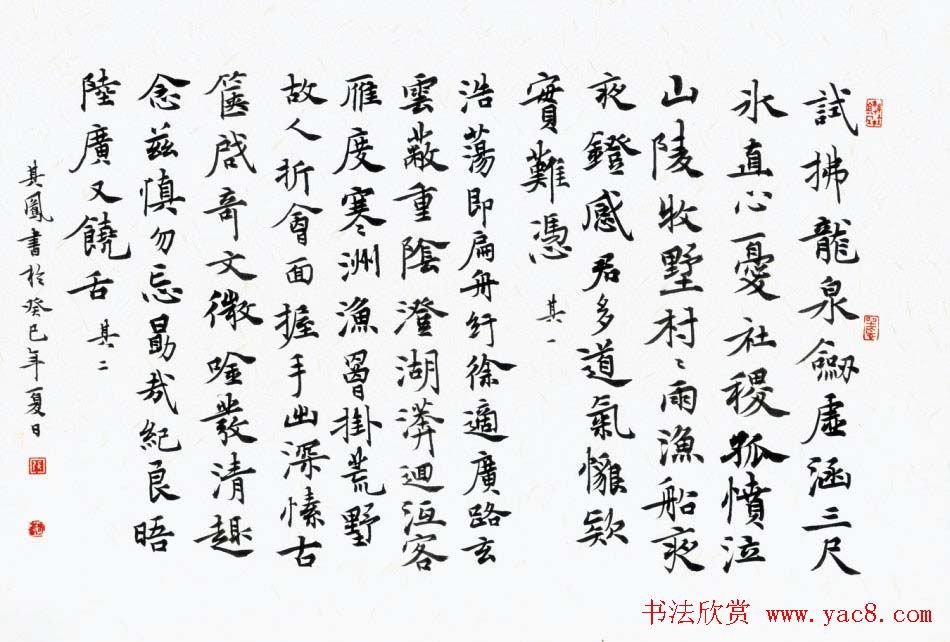 試拂龍泉劔虛涵三尺
冰直心憂社稷孤憤泣
山陵牧墅村々雨漁船夜
夜鐙感君多道氣欵
實難憑 其一
浩蕩即扁舟紆徐適廣路玄
雲蔽重陰澄湖漭迴沍客
雁度寒洲漁罾掛荒墅
故人折會面握手出深愫古
篋啟奇文微唫發清趣
念茲慎勿忘勗哉紀良晤
陸廣又饒舌 其二
其鳳書於癸巳年夏日
书法欣赏 www.yac8.com